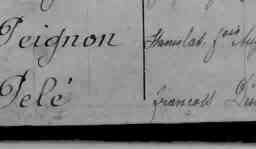 Peignon Stanislas, fois
Pelé francois